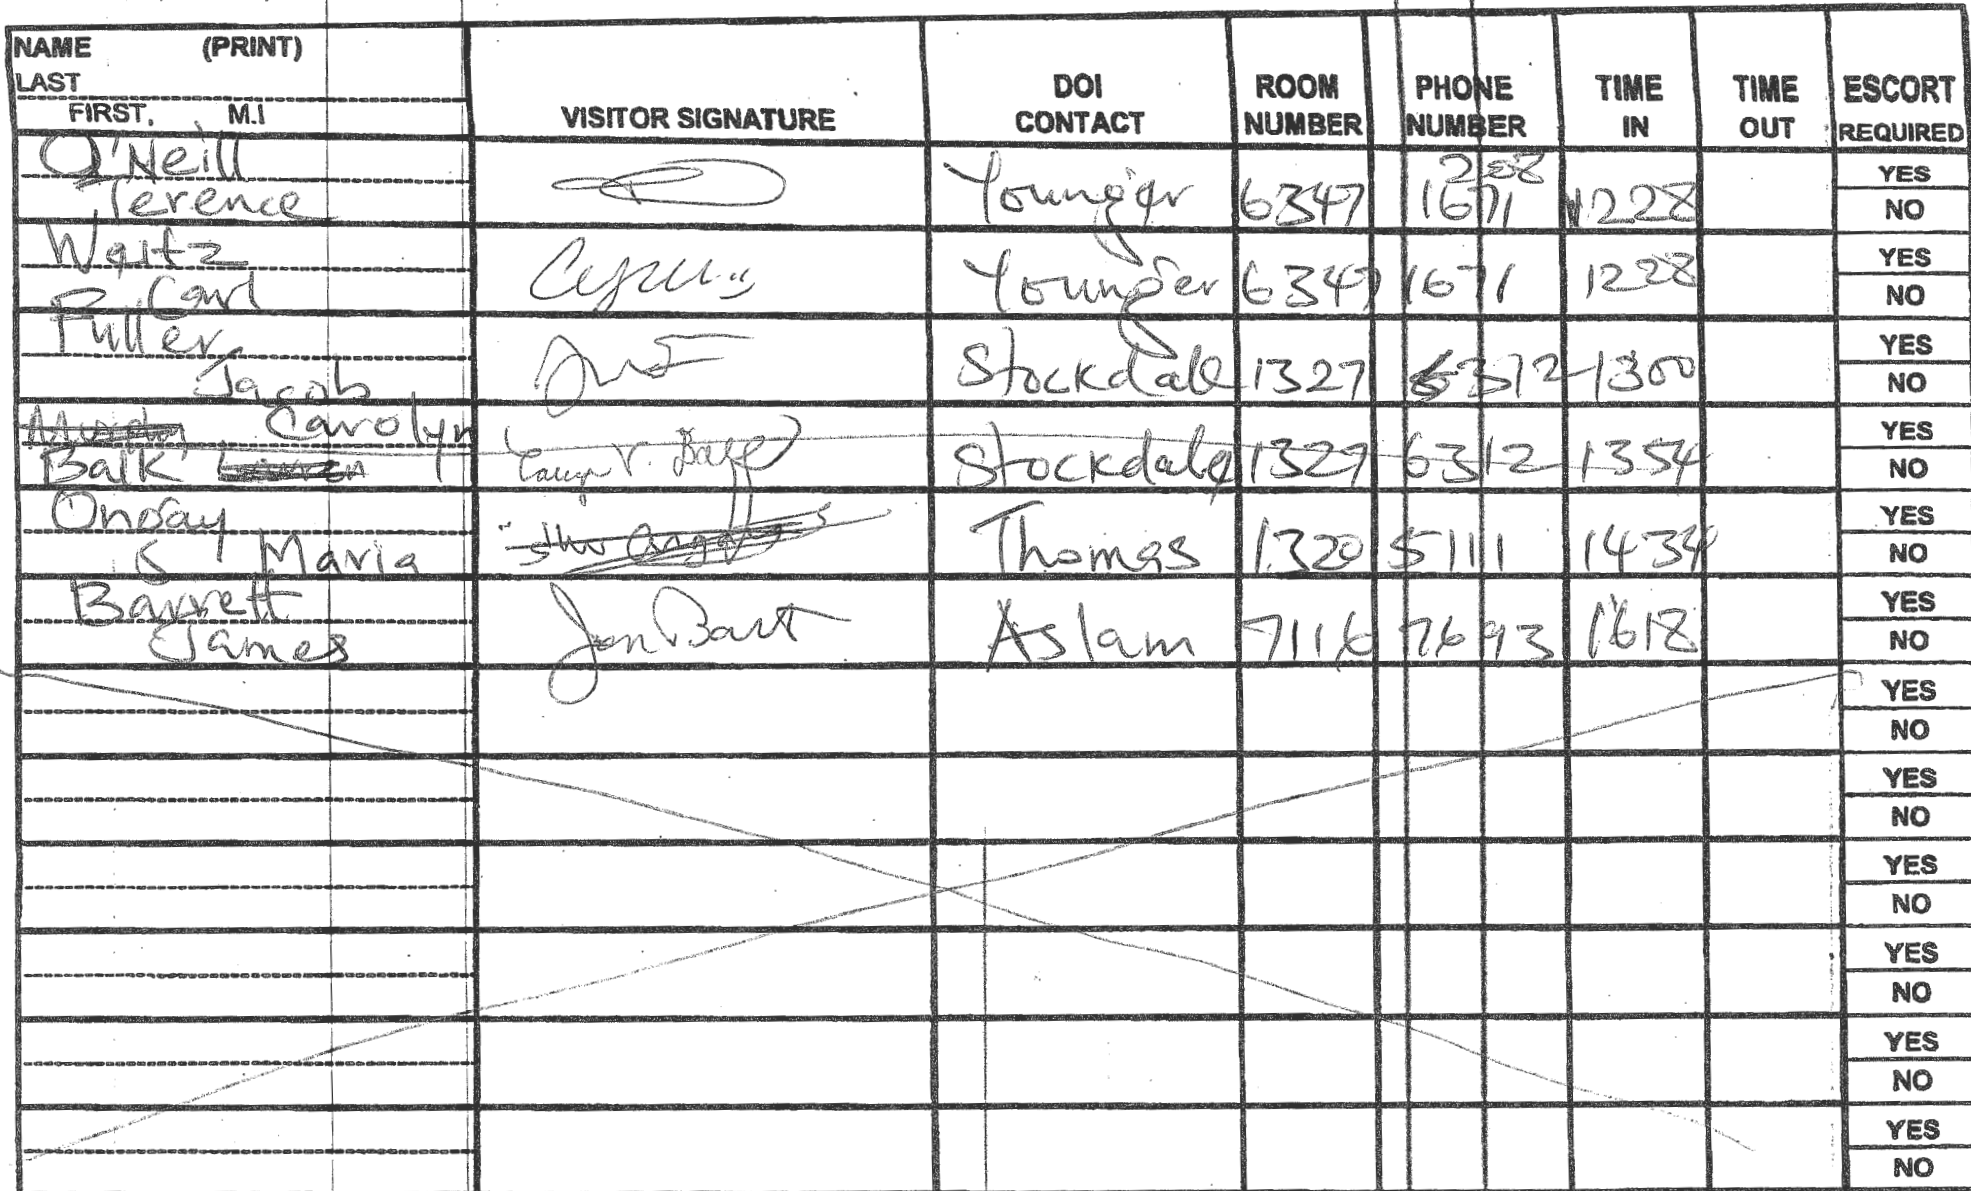 NAME (PRINT)
LAST
FIRST, M.I
VISITOR SIGNATURE
DOI CONTACT
ROOM NUMBER
PHONE NUMBER
TIME IN
TIME OUT
ESCORT REQUIRED
O'Neill
Terence Younger 6347 208 1671 1228 YES NO
Waitz
Carl Younger 6347 1671 1228 YES NO
Fuller
Jacob Stockdale 1327 6312 1300 YES NO
Carolyn
Balk Stockdale 1327 6312 1354 YES NO
Onday
Maria Thomas 1320 5111 1434 YES NO
Barrett
James Aslam 7116 7693 1618 YES NO
YES
NO
YES
NO
YES
NO
YES
NO
YES
NO
YES
NO